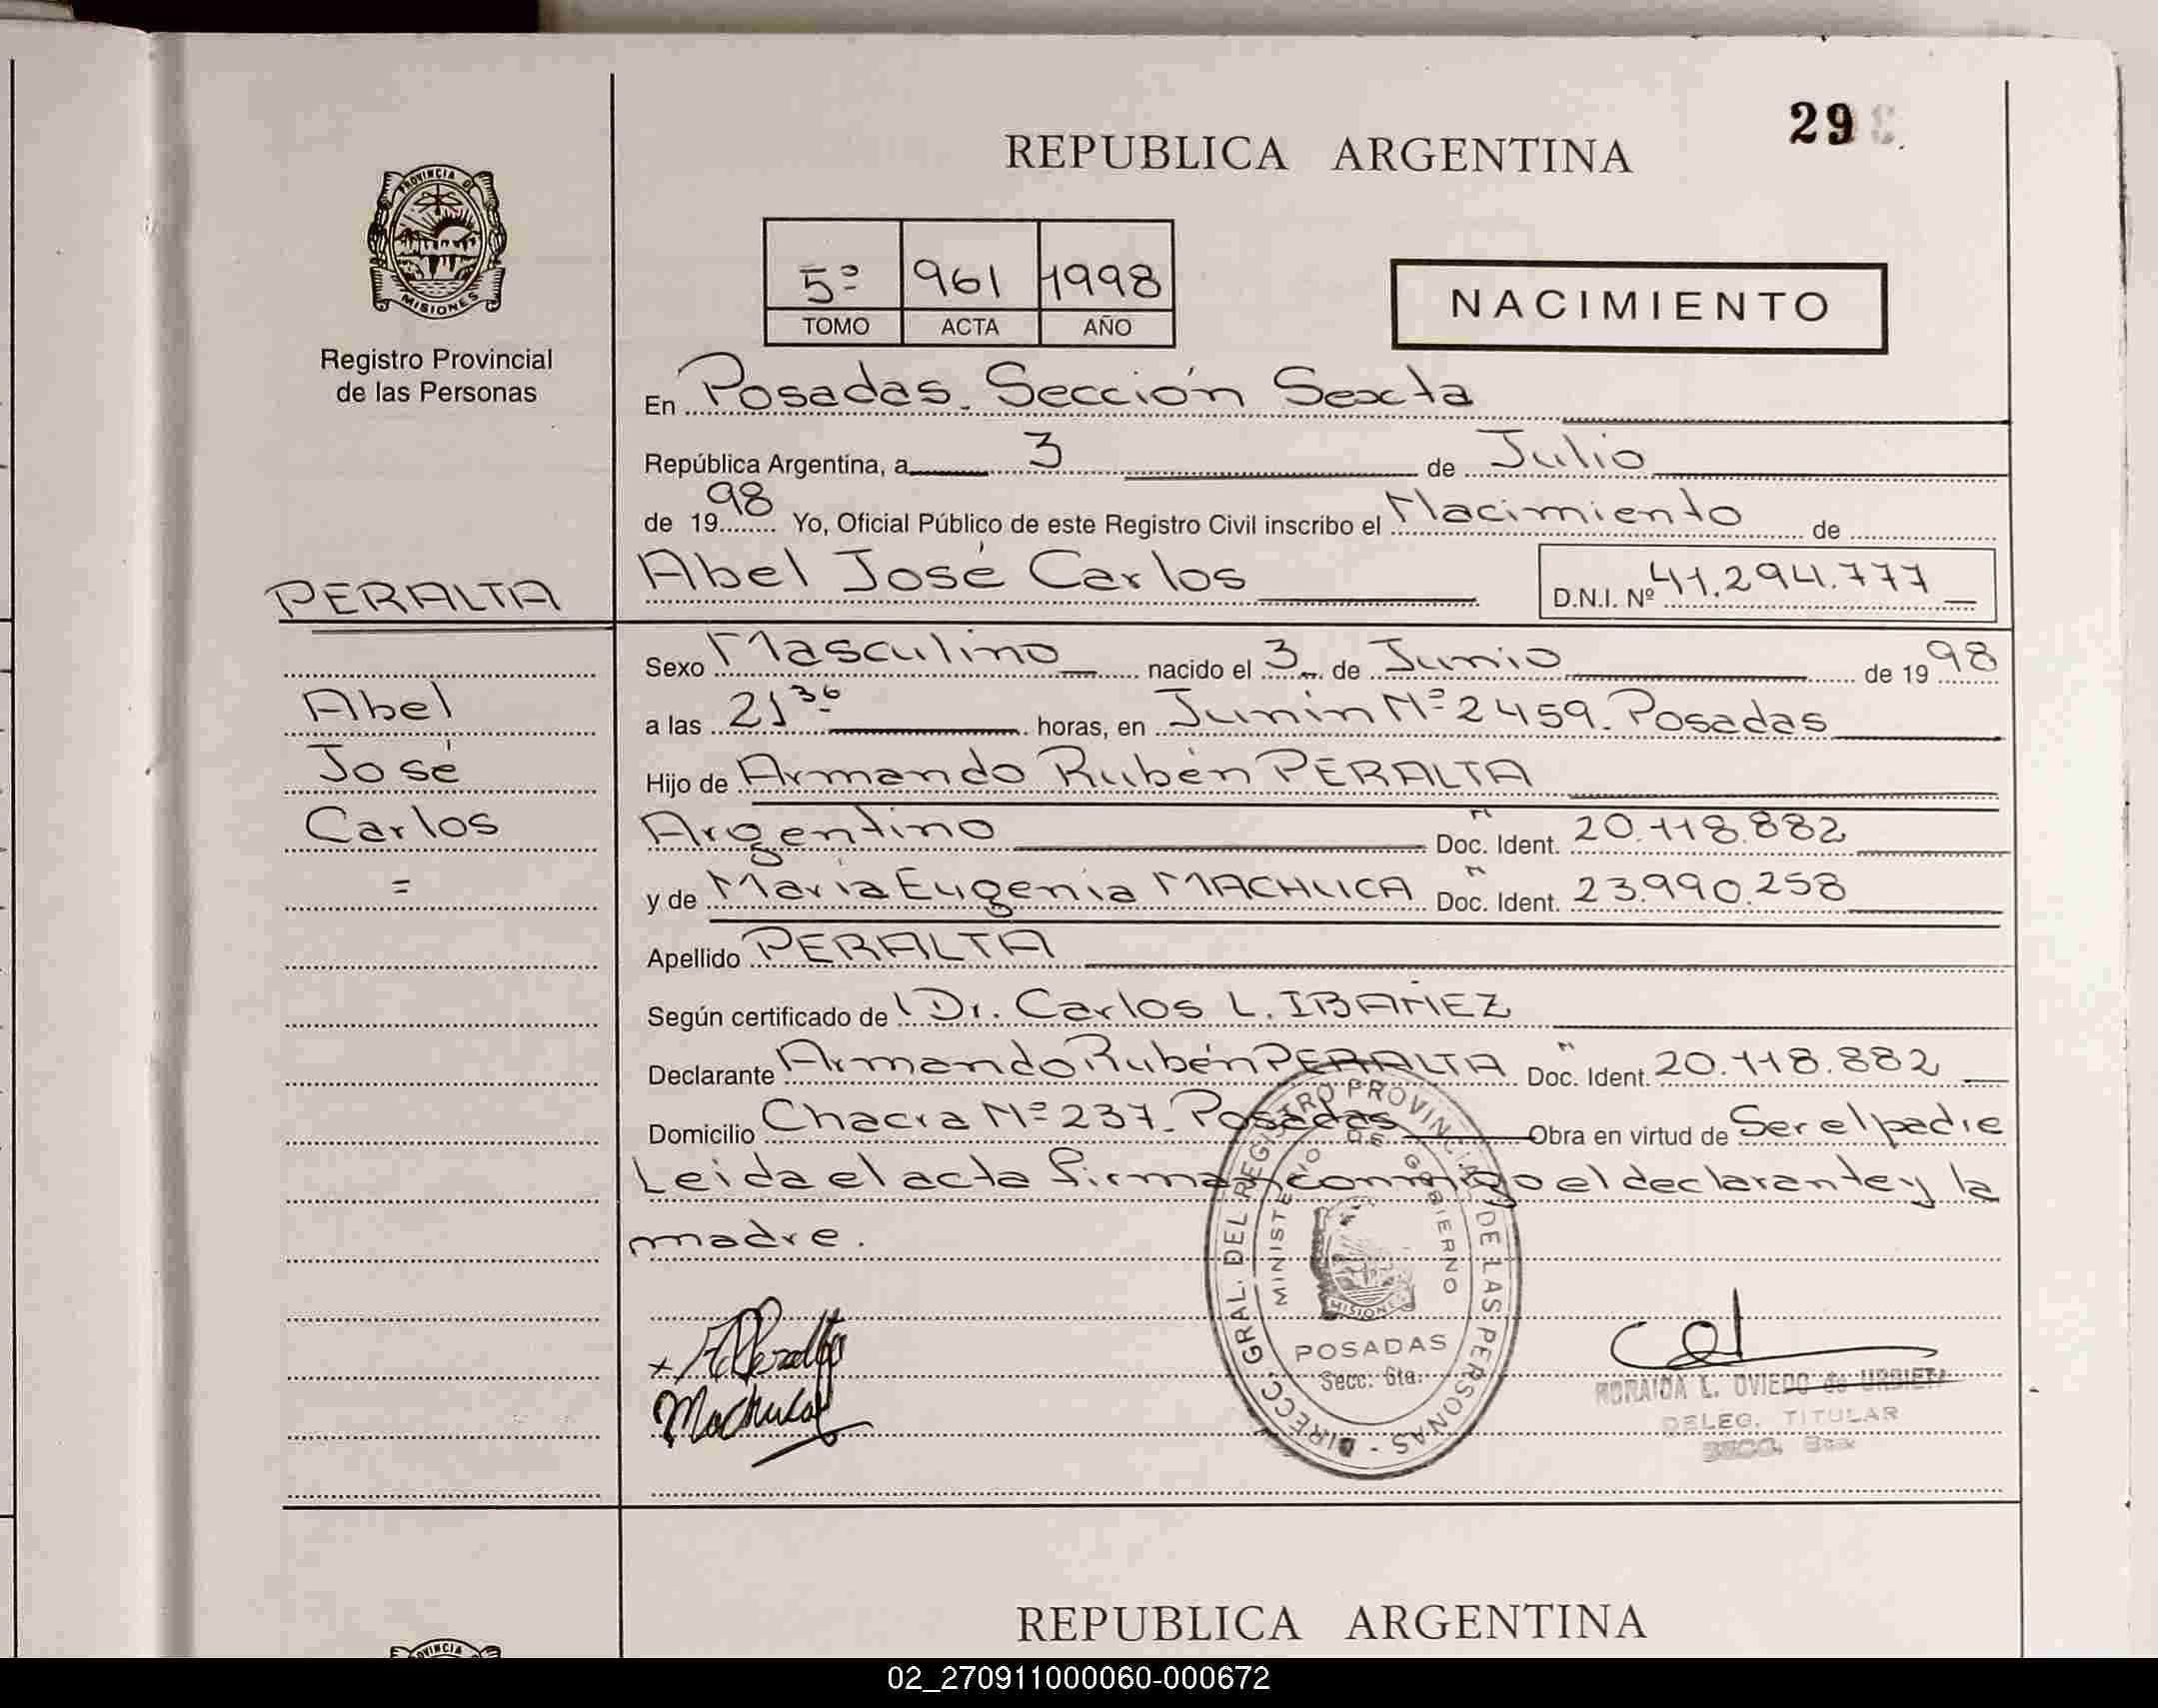 29
REPUBLICA ARGENTINA
PROVINCIA DE
MISIONES
Registro Provincial
de las Personas
5º 961 1998
TOMO ACTA AÑO
NACIMIENTO
En Posadas. Sección Sexta
República Argentina, a 3 de Julio
de 1998 Yo, Oficial Público de este Registro Civil inscribo el Nacimiento de
PERALTA
Abel José Carlos
D.N.I. Nº 41.294.777
Sexo Masculino nacido el 3 de Junio de 1998
Abel
José
Carlos
=
a las 21 36 horas, en Junin Nº 2459. Posadas
Hijo de Armando Rubén PERALTA
Argentino Doc. Ident. 20.118.882
y de María Eugenia MACHUCA Doc. Ident. 23.990.258
Apellido PERALTA
Según certificado de Dr. Carlos L. IBAÑEZ
Declarante Armando Rubén PERALTA Doc. Ident. 20.118.882
Domicilio Chacra Nº 237. Posadas Obra en virtud de Ser el padre
Leida el acta firman conmigo el declarante y la
madre.
DIRECC. GRAL. DEL REGISTRO PROVINCIAL DE LAS PERSONAS -
MINISTERIO DE GOBIERNO
MISIONES
POSADAS
Secc: 6ta.
x APeralta
Machuca
L. OVIEDO de URBIETA
DELEG. TITULAR
SECC. 6ta.
REPUBLICA ARGENTINA
02_270911000060-000672